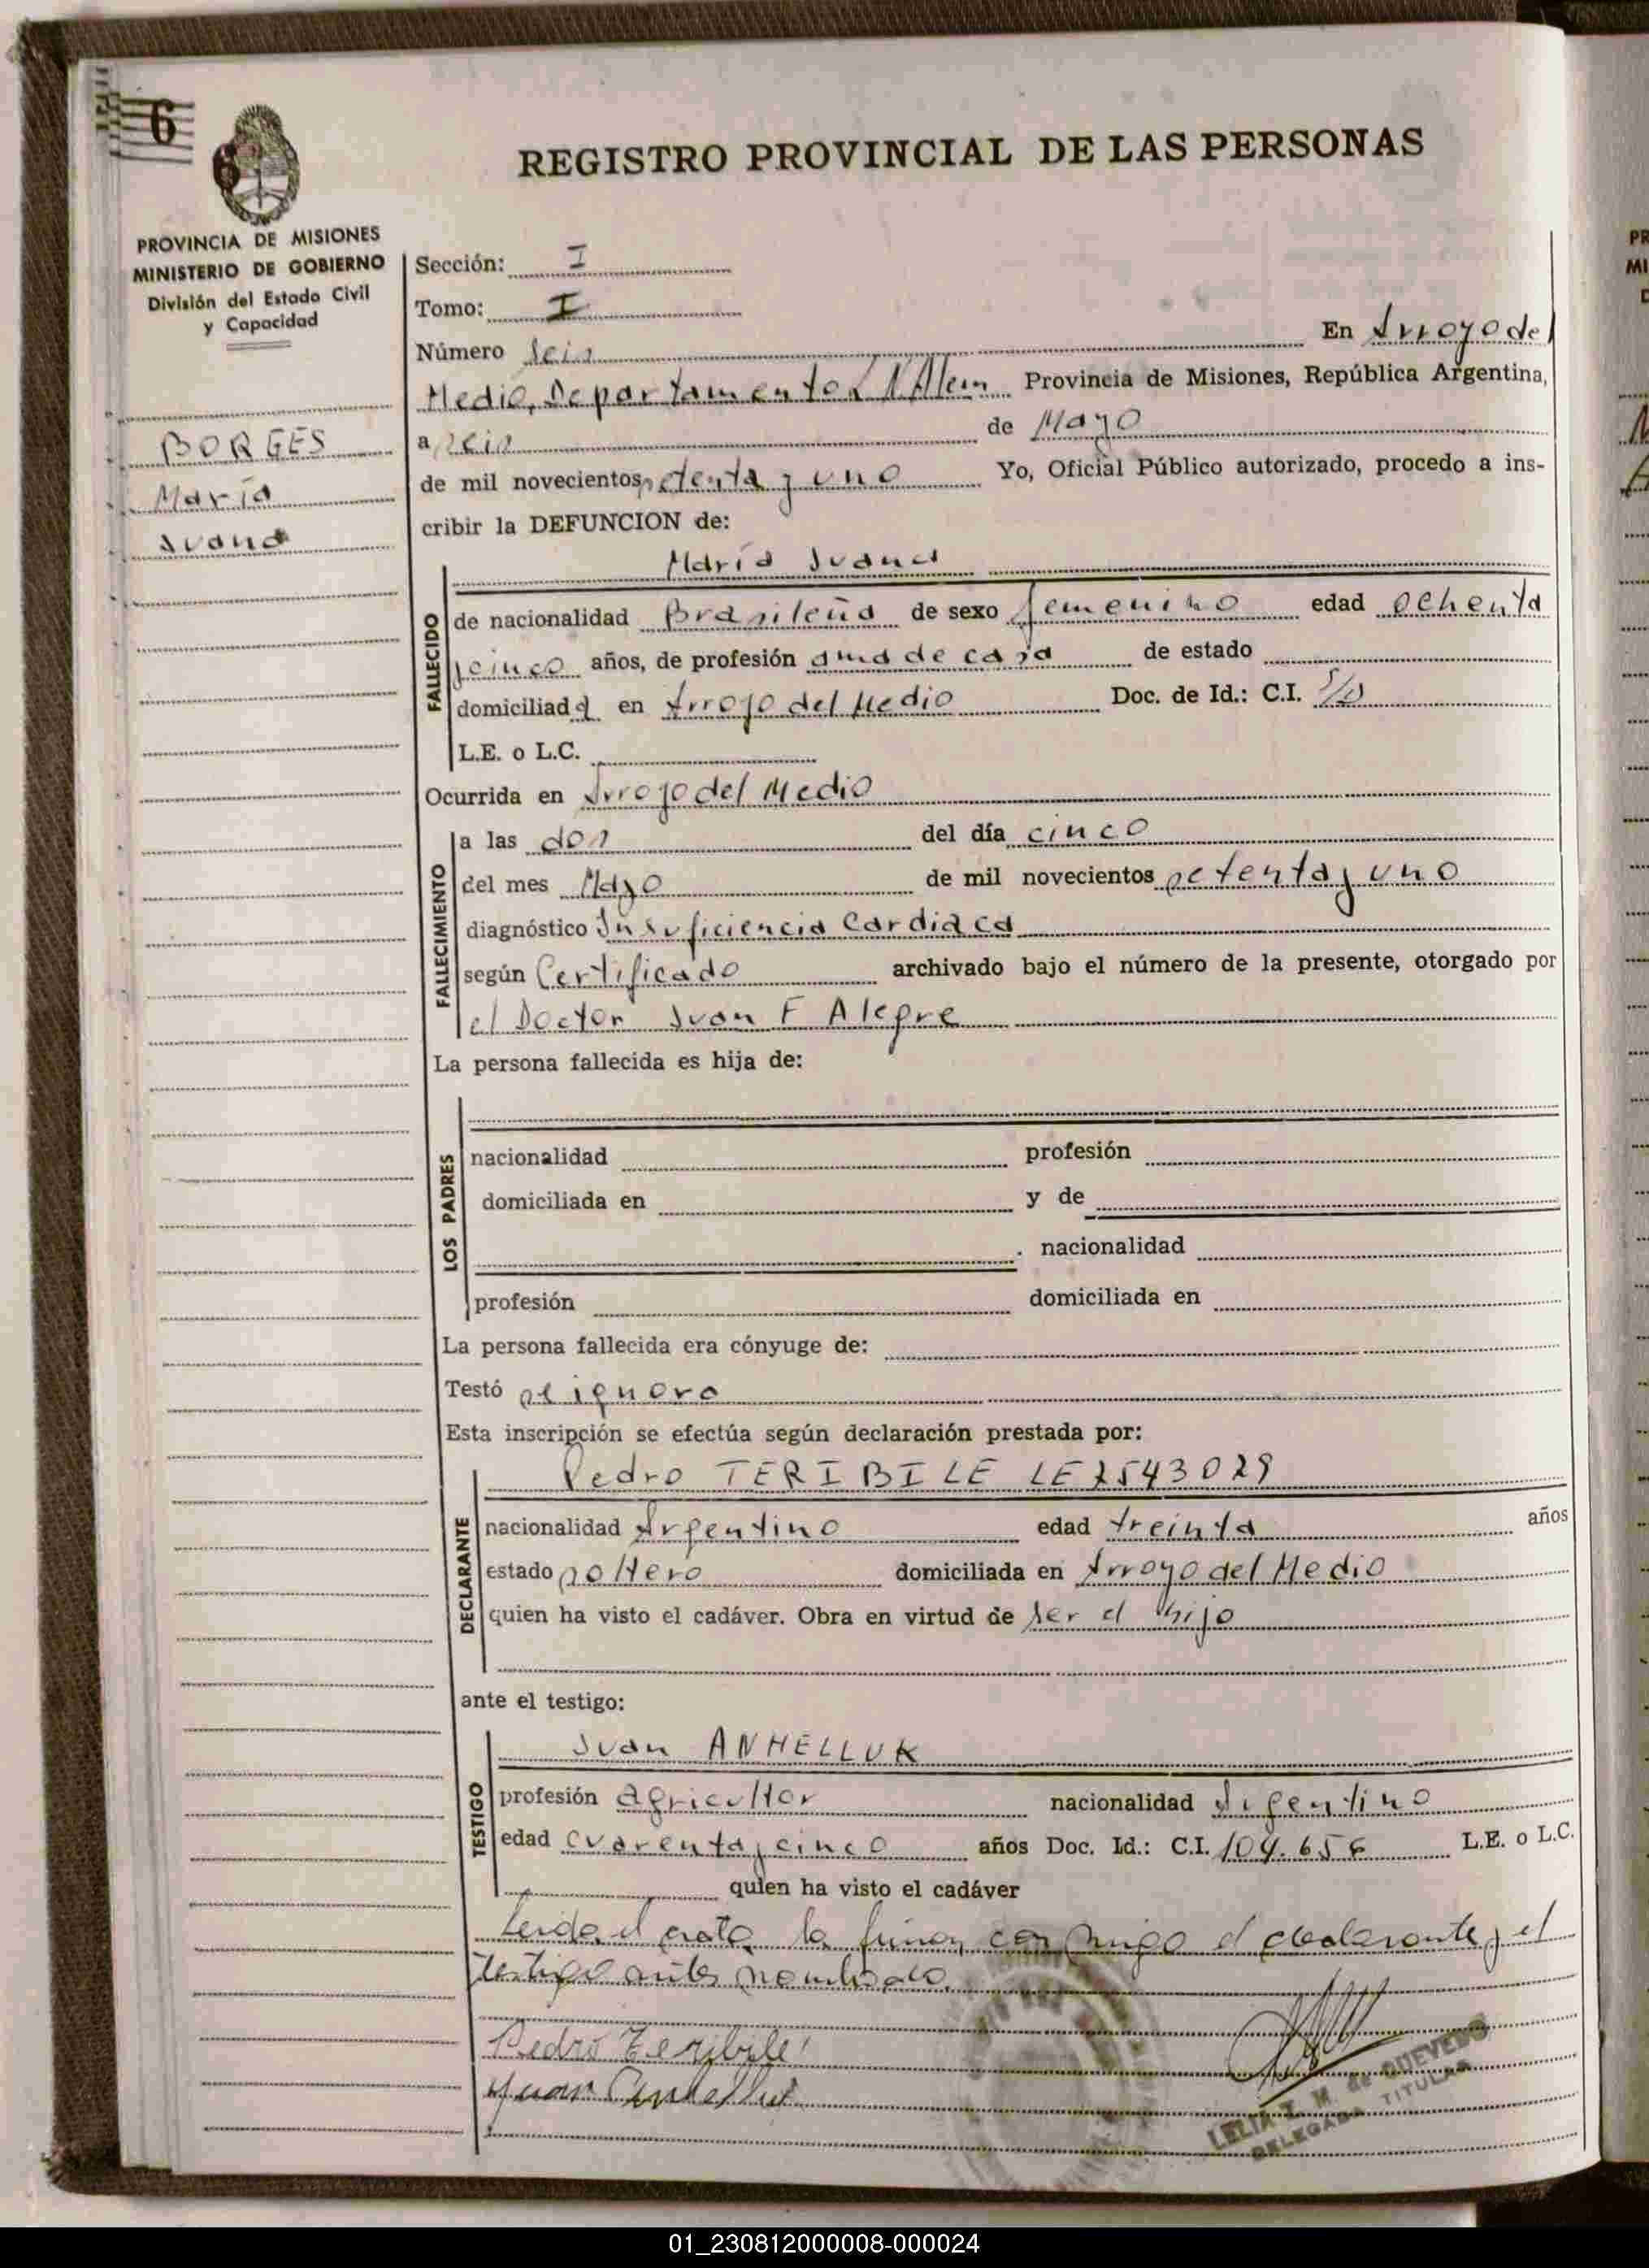 6
6
REGISTRO PROVINCIAL DE LAS PERSONAS
PROVINCIA DE MISIONES
MINISTERIO DE GOBIERNO
División del Estado Civil
y Capacidad
BORGES
María
Juana
Sección: I
Tomo: I
Número seis En Arroyo del
Medio, Departamento L N Alem Provincia de Misiones, República Argentina,
a seis de Mayo
de mil novecientos setenta y uno Yo, Oficial Público autorizado, procedo a ins-
cribir la DEFUNCION de:
María Juana
FALLECIDO
de nacionalidad Brasileña de sexo femenino edad ochenta
y cinco años, de profesión ama de casa de estado
domiciliada en Arroyo del Medio Doc. de Id.: C.I.
L.E. o L.C.
Ocurrida en Arroyo del Medio
FALLECIMIENTO
a las dos del día cinco
del mes Mayo de mil novecientos setenta y uno
diagnóstico Insuficiencia Cardiaca
según Certificado archivado bajo el número de la presente, otorgado por
el Doctor Juan F Alegre
La persona fallecida es hija de:
LOS PADRES
nacionalidad profesión
domiciliada en y de
. nacionalidad
profesión domiciliada en
La persona fallecida era cónyuge de:
Testó se ignora
Esta inscripción se efectúa según declaración prestada por:
Pedro TERIBILE LE 7543029
DECLARANTE
nacionalidad Argentino edad treinta años
estado soltero domiciliada en Arroyo del Medio
quien ha visto el cadáver. Obra en virtud de ser el hijo
ante el testigo:
Juan ANHELLUK
TESTIGO
profesión agricultor nacionalidad Argentino
edad cuarenta y cinco años Doc. Id.: C.I. 104.656 L.E. o L.C.
quien ha visto el cadáver
Leida el acta la firman conmigo el declarante y el
testigo antes nombrado
Pedro Teribile
Juan Anhelluk
LELIA Z. M. de QUEVEDO
DELEGADA TITULAR
01_230812000008-000024